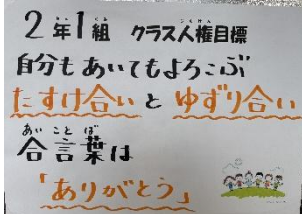 2年1組 クラス人権目標
自分もあいてもよろこぶ
たすけ合いとゆずり合い
合言葉は
「ありがとう」